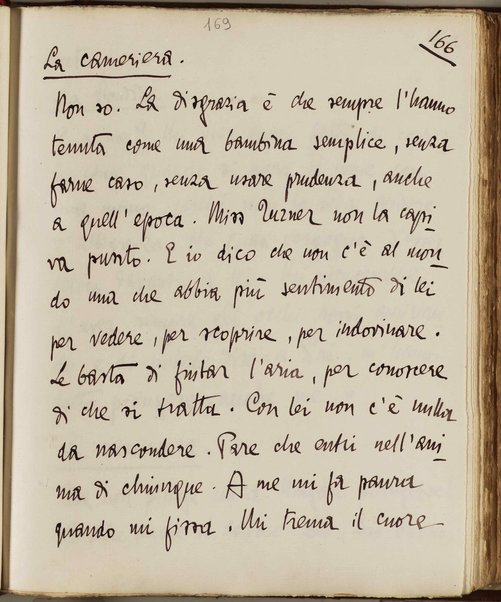 169
166
La cameriera.
Non so. La disgrazia è che sempre l'hanno
tenuta come una bambina semplice, senza
farne caso, senza usare prudenza, anche
a quell'epoca. Miss Turner non la capi
va punto. E io dico che non c'è al mon
do una che abbia più sentimento di lei
per vedere, per scoprire, per indovinare.
Le basta di fiutar l'aria, per conoscere
di che si tratta. Con lei non c'è nulla
da nascondere. Pare che entri nell'ani
ma di chiunque. A me mi fa paura
quando mi fissa. Mi trema il cuore